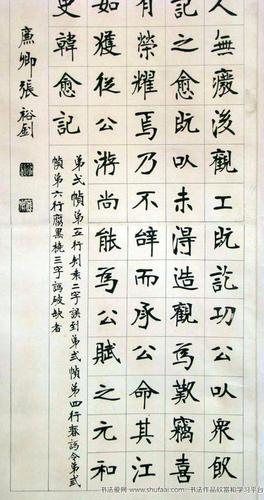 人無廢後觀工既訖功公以衆飲
記之愈既以未得造觀為歎竊喜
有榮耀焉乃不辭而承公命其江
如獲從公游尚能為公賦之元和
史韓愈記
弟弍幀弟五行刺来二字誤到弟弍幀弟四行春譌令弟弍
幀弟六行腐黑撓三字譌破缺者
廉卿張裕釗
书法爱网 www.shufaai.com 书法作品欣赏和学习平台